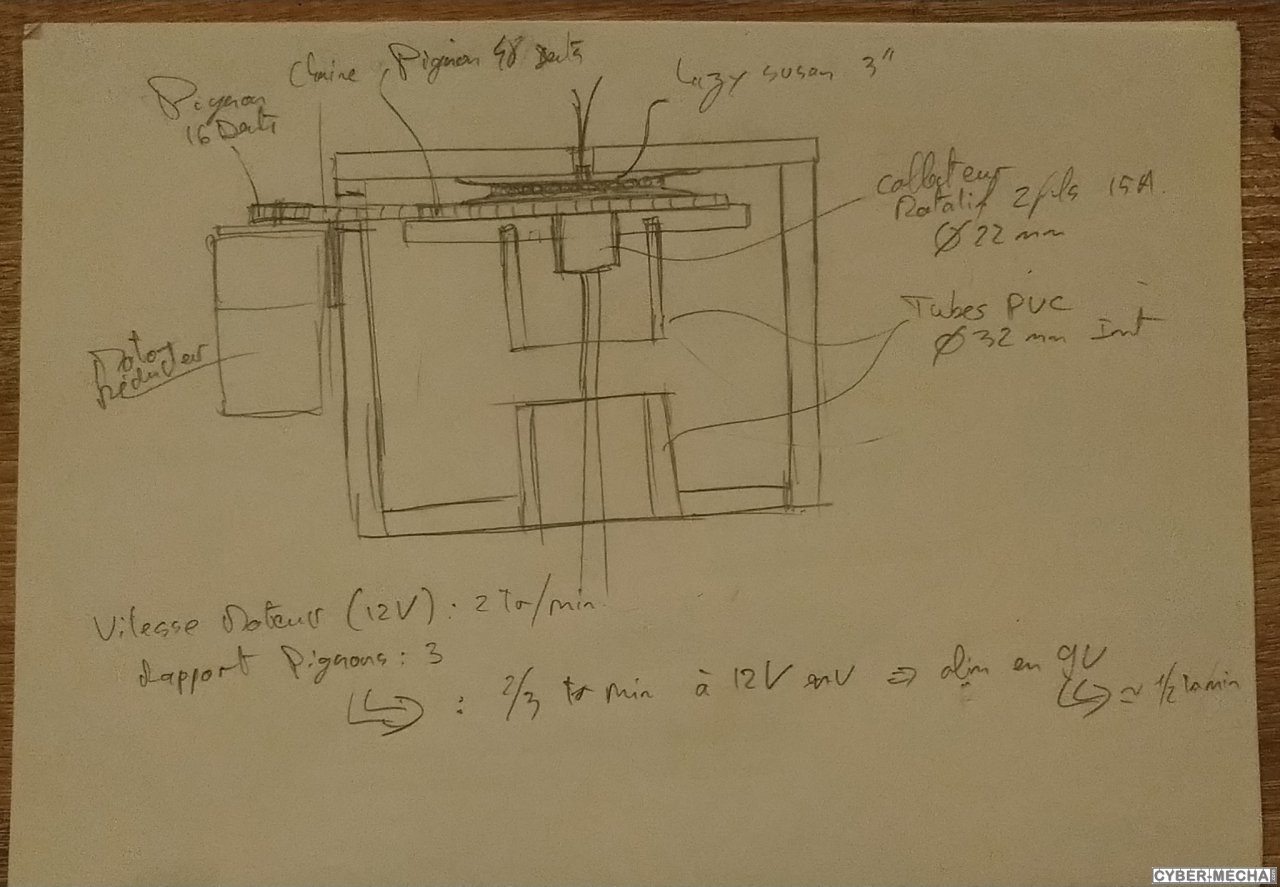 Chaine
Pignon 48 Dents
Lazy susan 3"
Pignon
16 Dents
Collecteur
Rotatif 2 fils 15A.
Ø 22 mm
Tubes PVC
Ø 32 mm Int
Moto
Réducteur
Vitesse Moteur (12V) : 2 Tr/min.
Rapport Pignons : 3
: 2/3 tr min à 12V env => alim en 9V
≃ 1/2 Tr min
CYBER-MECHA